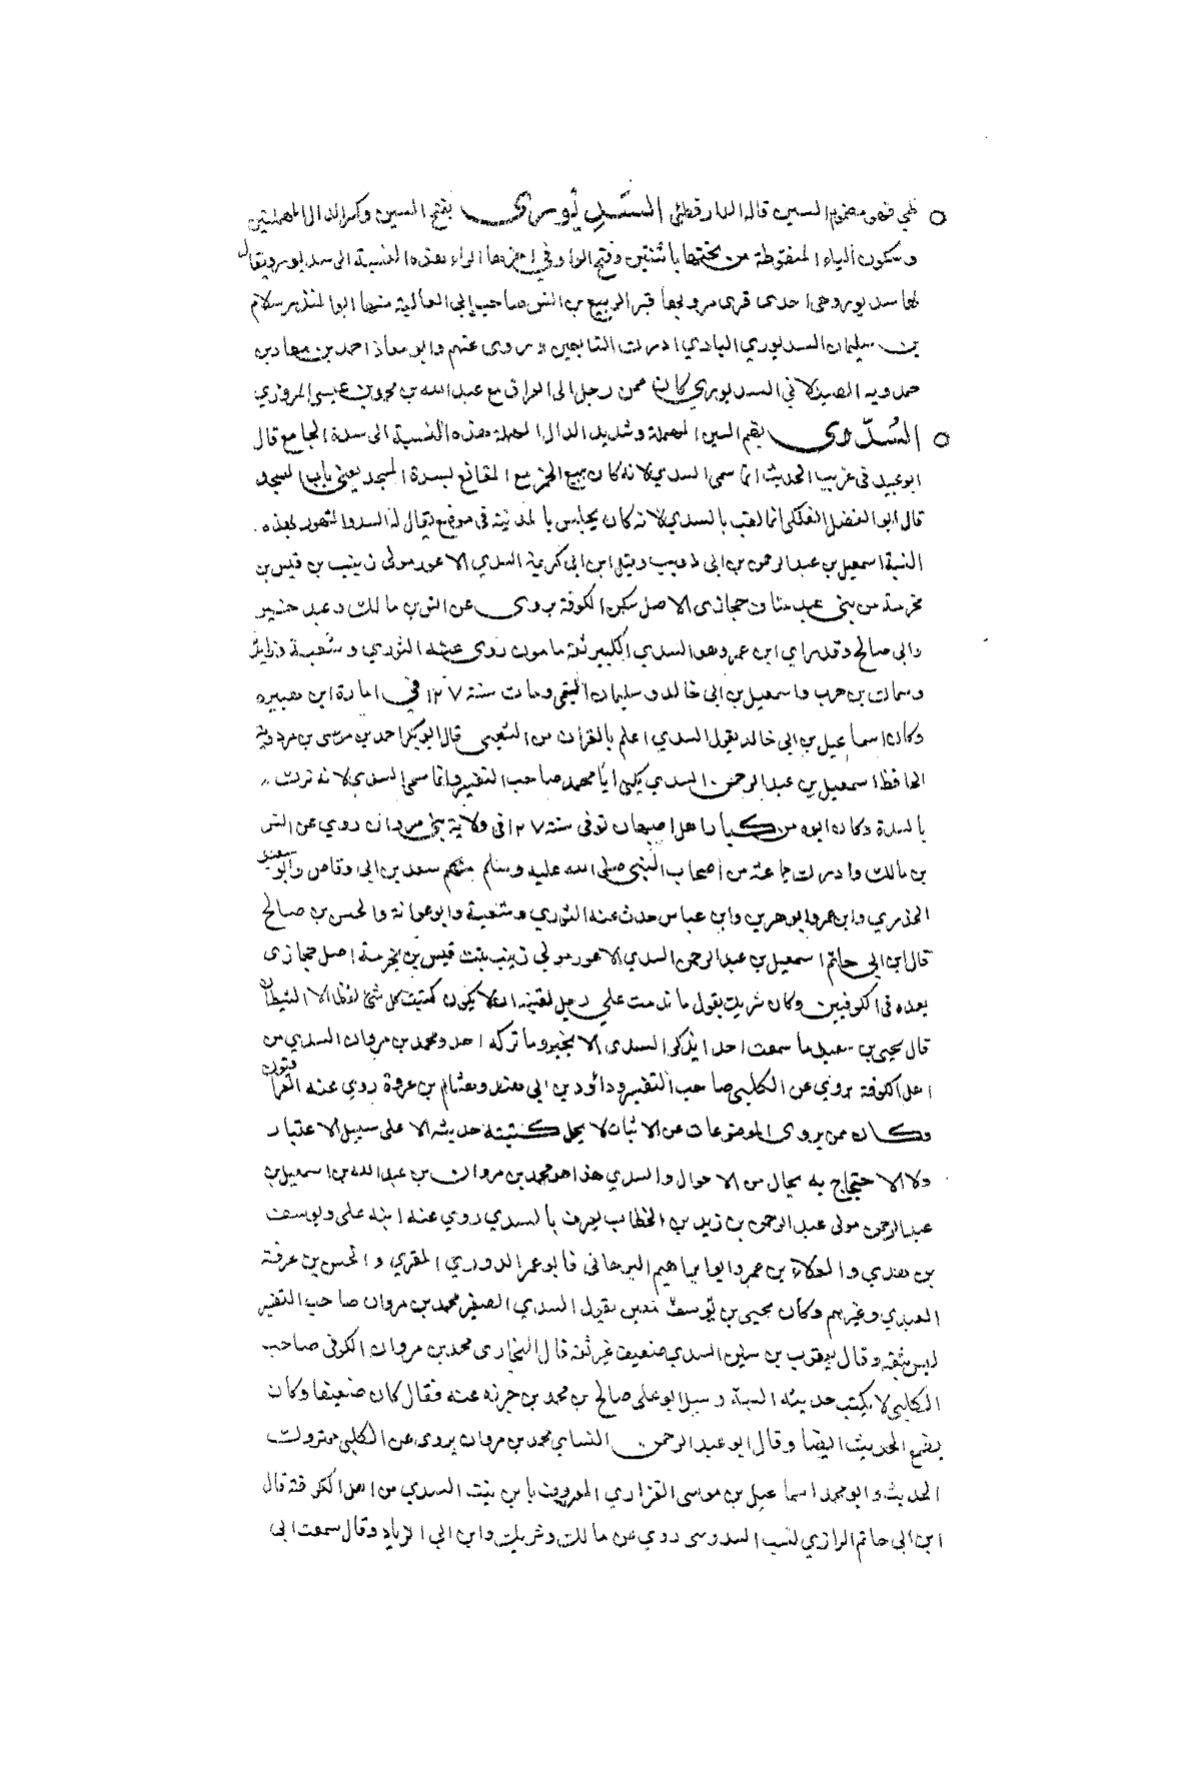 طي فهو مضموم السين قاله الدارقطني السَّدِيْوَرى بفتح السين وكسر الدال المهملتين
وسكون الياء المنقوطة من تحتها باثنتين وفتح الواو وفي اخرها الراء هذه النسبة الى سديور ويقال
لها سديور وهي احدى قرى مرو بها قبر الربيع بن انس صاحب ابي العالية منها ابو المنذر سلام
بن سليمان السديوري البادي ادرك التابعين وروى عنهم وابو معاذ احمد بن معاد بن
حمدويه الصيدلاني السديوري كان ممن رحل الى العراق مع عبد الله بن محمود بن عيسى المروزي
السُدّى بضم السين المهملة وشديد الدال المهملة هذه النسبة الى سدة الجامع قال
ابو عبيد في غريب الحديث انما سمى السدي لانه كان يبيع الخمر مع المقانع لسدة المسجد يعني باب المسجد
قال ابو الفضل الفلكي انما لقب بالسدي لانه كان يجالس بالمدينة في موضع يقال له السد والمشهور بهذه
النسبة اسمعيل بن عبد الرحمن بن ابي ذويب وقيل ابن ابي كريمة السدي الاعور مولى زينب بن قيس بن
مخرمة من بني عبد مناف حجازى الاصل سكن الكوفة يروى عن انس بن مالك وعبد خير
وابى صالح وقد راي ابن عمر وهو السدي الكبير ثقة مامون روى عنه الثوري وشعبة وزايدة
وسماك بن حرب واسمعيل بن ابى خالد وسليمان التيمى ومات سنة ١٢٧ في امارة ابن هبيرة
وكان اسماعيل بن ابي خالد يقول السدي اعلم بالقران من الشعبى قال ابو بكر احمد بن موسى بن مردويه
الحافظ اسمعيل بن عبد الرحمن السدي يكنى ابا محمد صاحب التفسير وانما سمى السدي لانه نزل
بالسدة وكان ابوه من كبار اهل اصبهان توفى سنة ١٢٧ في ولاية بني مروان روي عن انس
بن مالك وادرك جماعة من اصحاب النبي صلى الله عليه وسلم منهم سعد بن ابي وقاص وابو سعيد
الخدري وابن عمر وابو هريرة وابن عباس حدث عنه الثوري وشعبة وابو عوانة والحسن بن صالح
قال ابن ابي حاتم اسمعيل بن عبد الرحمن السدي الاعور مولي زينب بنت قيس بن مخرمة اصل حجازى
يعد في الكوفيين وكان شريك يقول ما ندمت علي رجل لقيته ان لا يكون كتبت كل شئ لفظ الا السدي
قال يحيى بن سعيد ما سمعت احدا يذكر السدى الا بخير وما تركه احد ومحمد بن مروان السدي من
اهل الكوفة يروي عن الكلبى صاحب التفسير ودائود بن ابي هند وهشام بن عروة روي عنه العراقيون
وكان ممن يروى الموضوعات عن الاثبات لا يحل كتبة حديثه الا على سبيل الاعتبار
ولا الاحتجاج به بحال من الاحوال والسدي هذا هو محمد بن مروان بن عبد الله بن اسمعيل بن
عبد الرحمن مولى عبد الرحمن بن زيد بن الخطاب يعرف بالسدي روي عنه ابنه على ويوسف
بن عدي والعلاء بن عمرو ابو ابراهيم الترجمانى وابو عمر الدوري المقري والحسن بن عرفة
العبدي وغيرهم وكان يحيى بن يقول السدي الصغير محمد بن مروان صاحب التفسير
ليس بثقة وقال يعقوب بن سفين السدي ضعيف غير ثقة قال البخارى محمد بن مروان الكوفى صاحب
الكلبي لا يكتب حديثه البتة وسيل ابو على صالح بن محمد بن جزرة عنه فقال كان ضعيفا وكان
يضع الحديث ايضا وقال ابو عبد الرحمن النساي محمد بن مروان يروى عن الكلبى متروك
الحديث وابو محمد اسماعيل بن موسى الفزاري المعروف بابن بنت السدي من اهل الكوفة قال
ابن ابي حاتم الرازي نسب السدوسى روي عن مالك وشريك وابن ابي الزناد وقال سمعت ابى